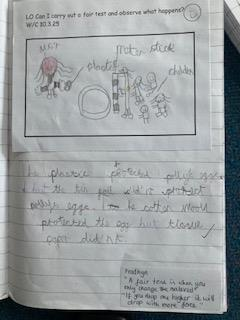 LO Can I carry out a fair test and observe what happens?
W/C 10.3.25
meter stick
plaster
children
he plastic protected pollys egg
but the tin foil didn't protect
pollys eggs. he cotten wool
protected the egg but tissue
paper did'nt.
Pradhya
"A fair test is when you
only change the material"
"If you drop one higher it will
drop with more force."